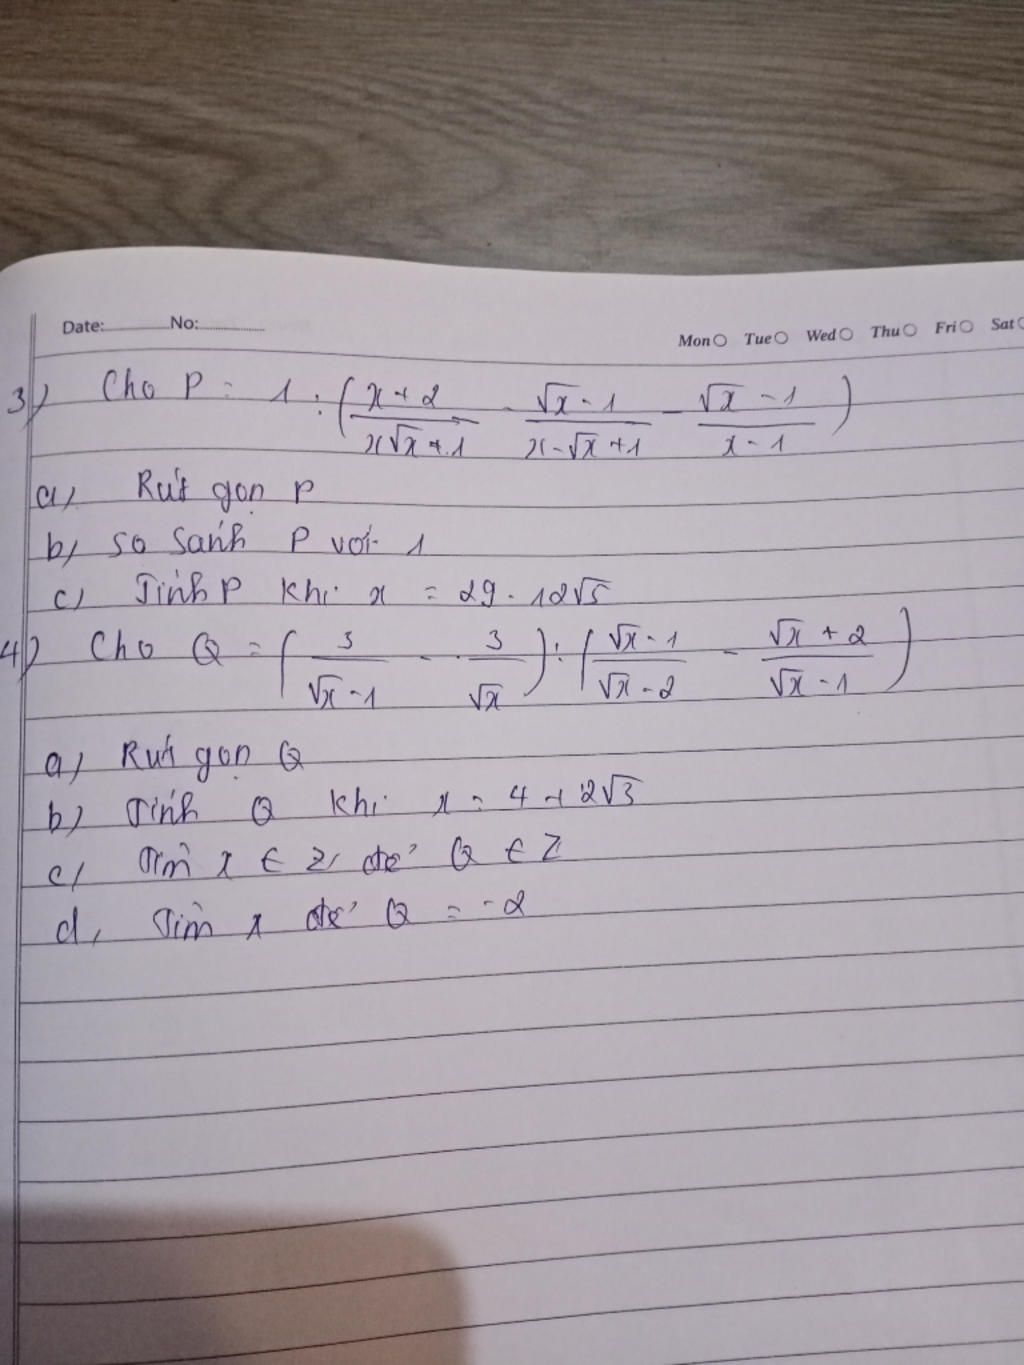 Date: No:
Mon Tue Wed Thu Fri Sat
3) Cho P = 1 : ( (x + 2)/(x√x + 1) - (√x - 1)/(x - √x + 1) - (√x - 1)/(x - 1) )
a) Rút gọn P
b) So sánh P với 1
c) Tính P khi x = 29 - 12√5
4) Cho Q = ( 3/(√x - 1) - 3/√x ) : ( (√x - 1)/(√x - 2) - (√x + 2)/(√x - 1) )
a) Rút gọn Q
b) Tính Q khi x = 4 + 2√3
c) Tìm x ∈ Z để Q ∈ Z
d, Tìm x để Q = -2